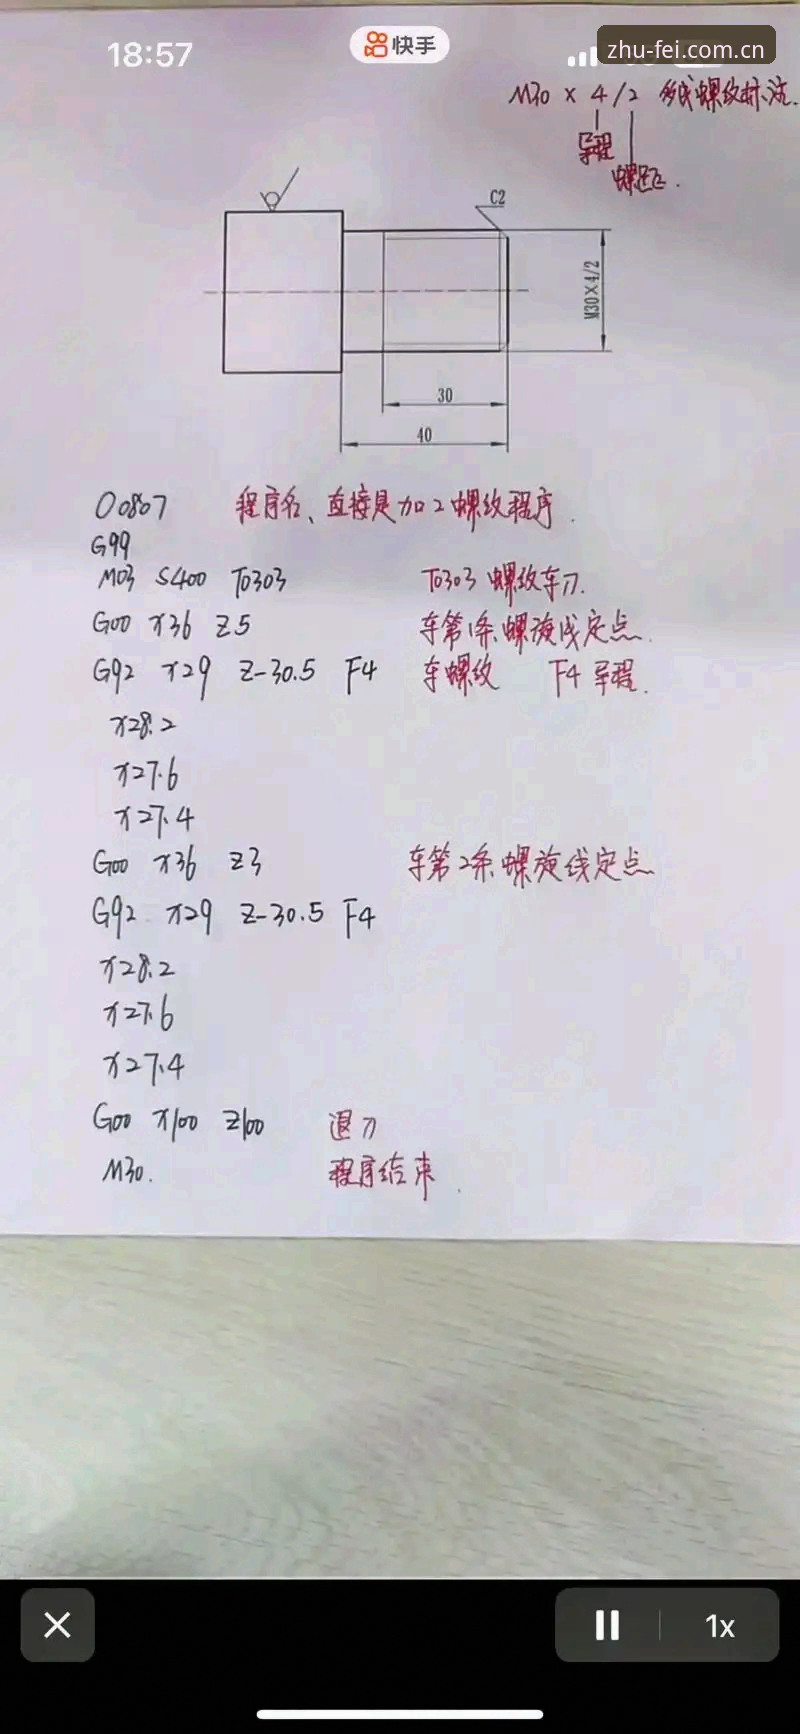 18:57
快手
zhu-fei.com.cn
M30 × 4/2 多线螺纹标注.
导程
螺距.
C2
M30×4/2
30
40
O0807 程序名、直接是加工螺纹程序.
G99
M03 S400 T0303 T0303 螺纹车刀.
G00 X36 Z5 车第1条螺旋线定点.
G92 X29 Z-30.5 F4 车螺纹 F4 导程.
X28.2
X27.6
X27.4
G00 X36 Z3 车第2条螺旋线定点.
G92 X29 Z-30.5 F4
X28.2
X27.6
X27.4
G00 X100 Z100 退刀
M30. 程序结束.
1x